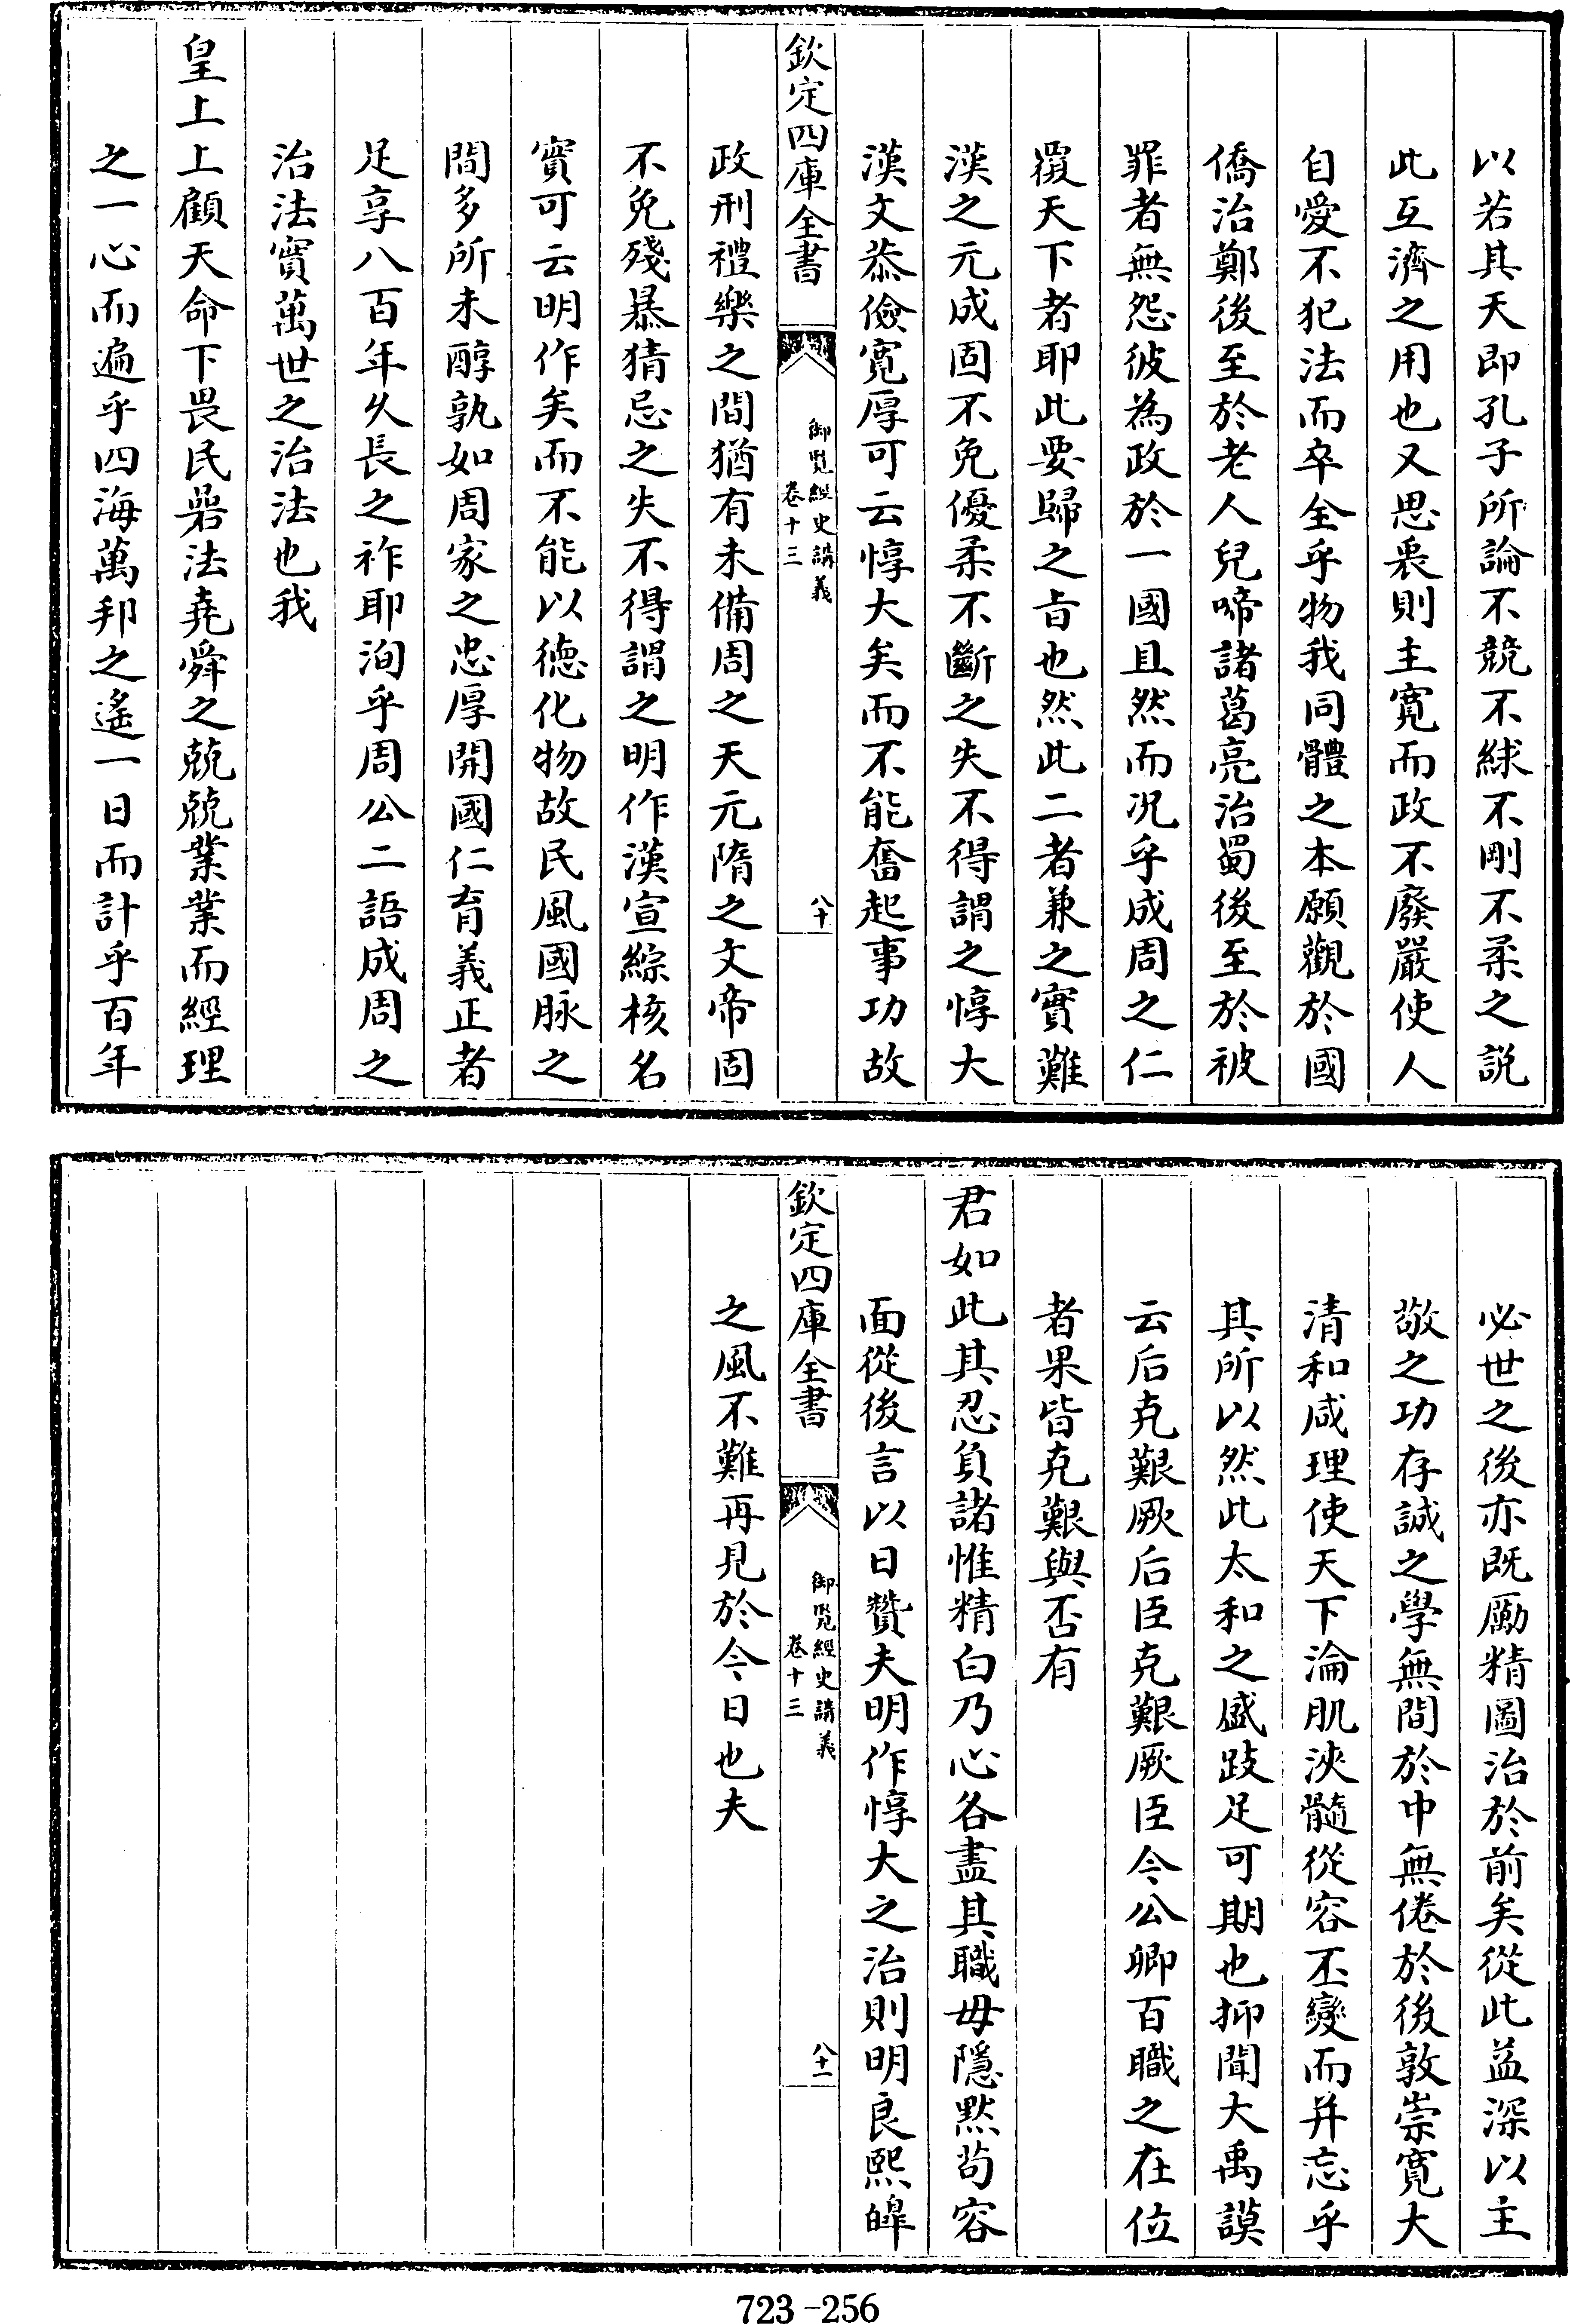 以若其天即孔子所論不競不絿不剛不柔之説
此互濟之用也又思裴則主寛而政不廢嚴使人
自愛不犯法而卒全乎物我同體之本願觀於國
僑治鄭後至於老人兒啼諸葛亮治蜀後至於被
罪者無怨彼為政於一國且然而况乎成周之仁
覆天下者耶此要歸之旨也然此二者兼之實難
漢之元成固不免優柔不斷之失不得謂之惇大
漢文恭儉寛厚可云惇大矣而不能奮起事功故
欽定四庫全書
御覽經史講義
卷十三
八十
政刑禮樂之間猶有未備周之天元隋之文帝固
不免殘暴猜忌之失不得謂之明作漢宣綜核名
實可云明作矣而不能以德化物故民風國脉之
間多所未醇孰如周家之忠厚開國仁育義正者
足享八百年久長之祚耶洵乎周公二語成周之
治法實萬世之治法也我
皇上上顧天命下畏民碞法堯舜之兢兢業業而經理
之一心而遍乎四海萬邦之遙一日而計乎百年
必世之後亦既勵精圖治於前矣從此益深以主
敬之功存誠之學無間於中無倦於後敦崇寛大
清和咸理使天下淪肌浹髓從容丕變而并忘乎
其所以然此太和之盛跂足可期也抑聞大禹謨
云后克艱厥后臣克艱厥臣今公卿百職之在位
者果皆克艱與否有
君如此其忍負諸惟精白乃心各盡其職毋隱黙茍容
面從後言以日贊夫明作惇大之治則明良熙皥
欽定四庫全書
御覽經史講義
卷十三
八十一
之風不難再見於今日也夫
723-256